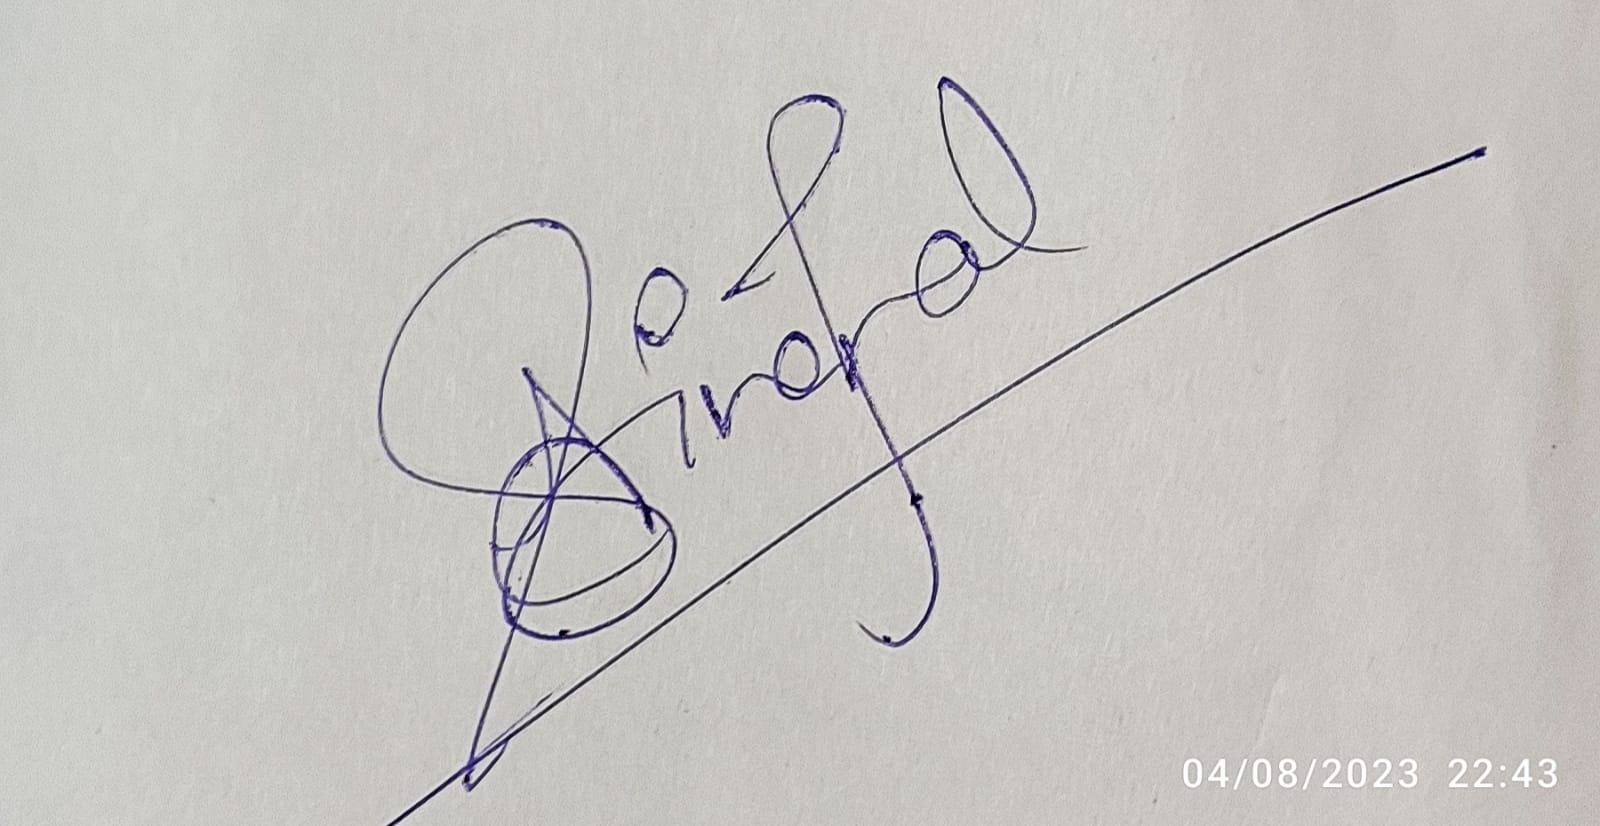 Singhal
04/08/2023 22:43